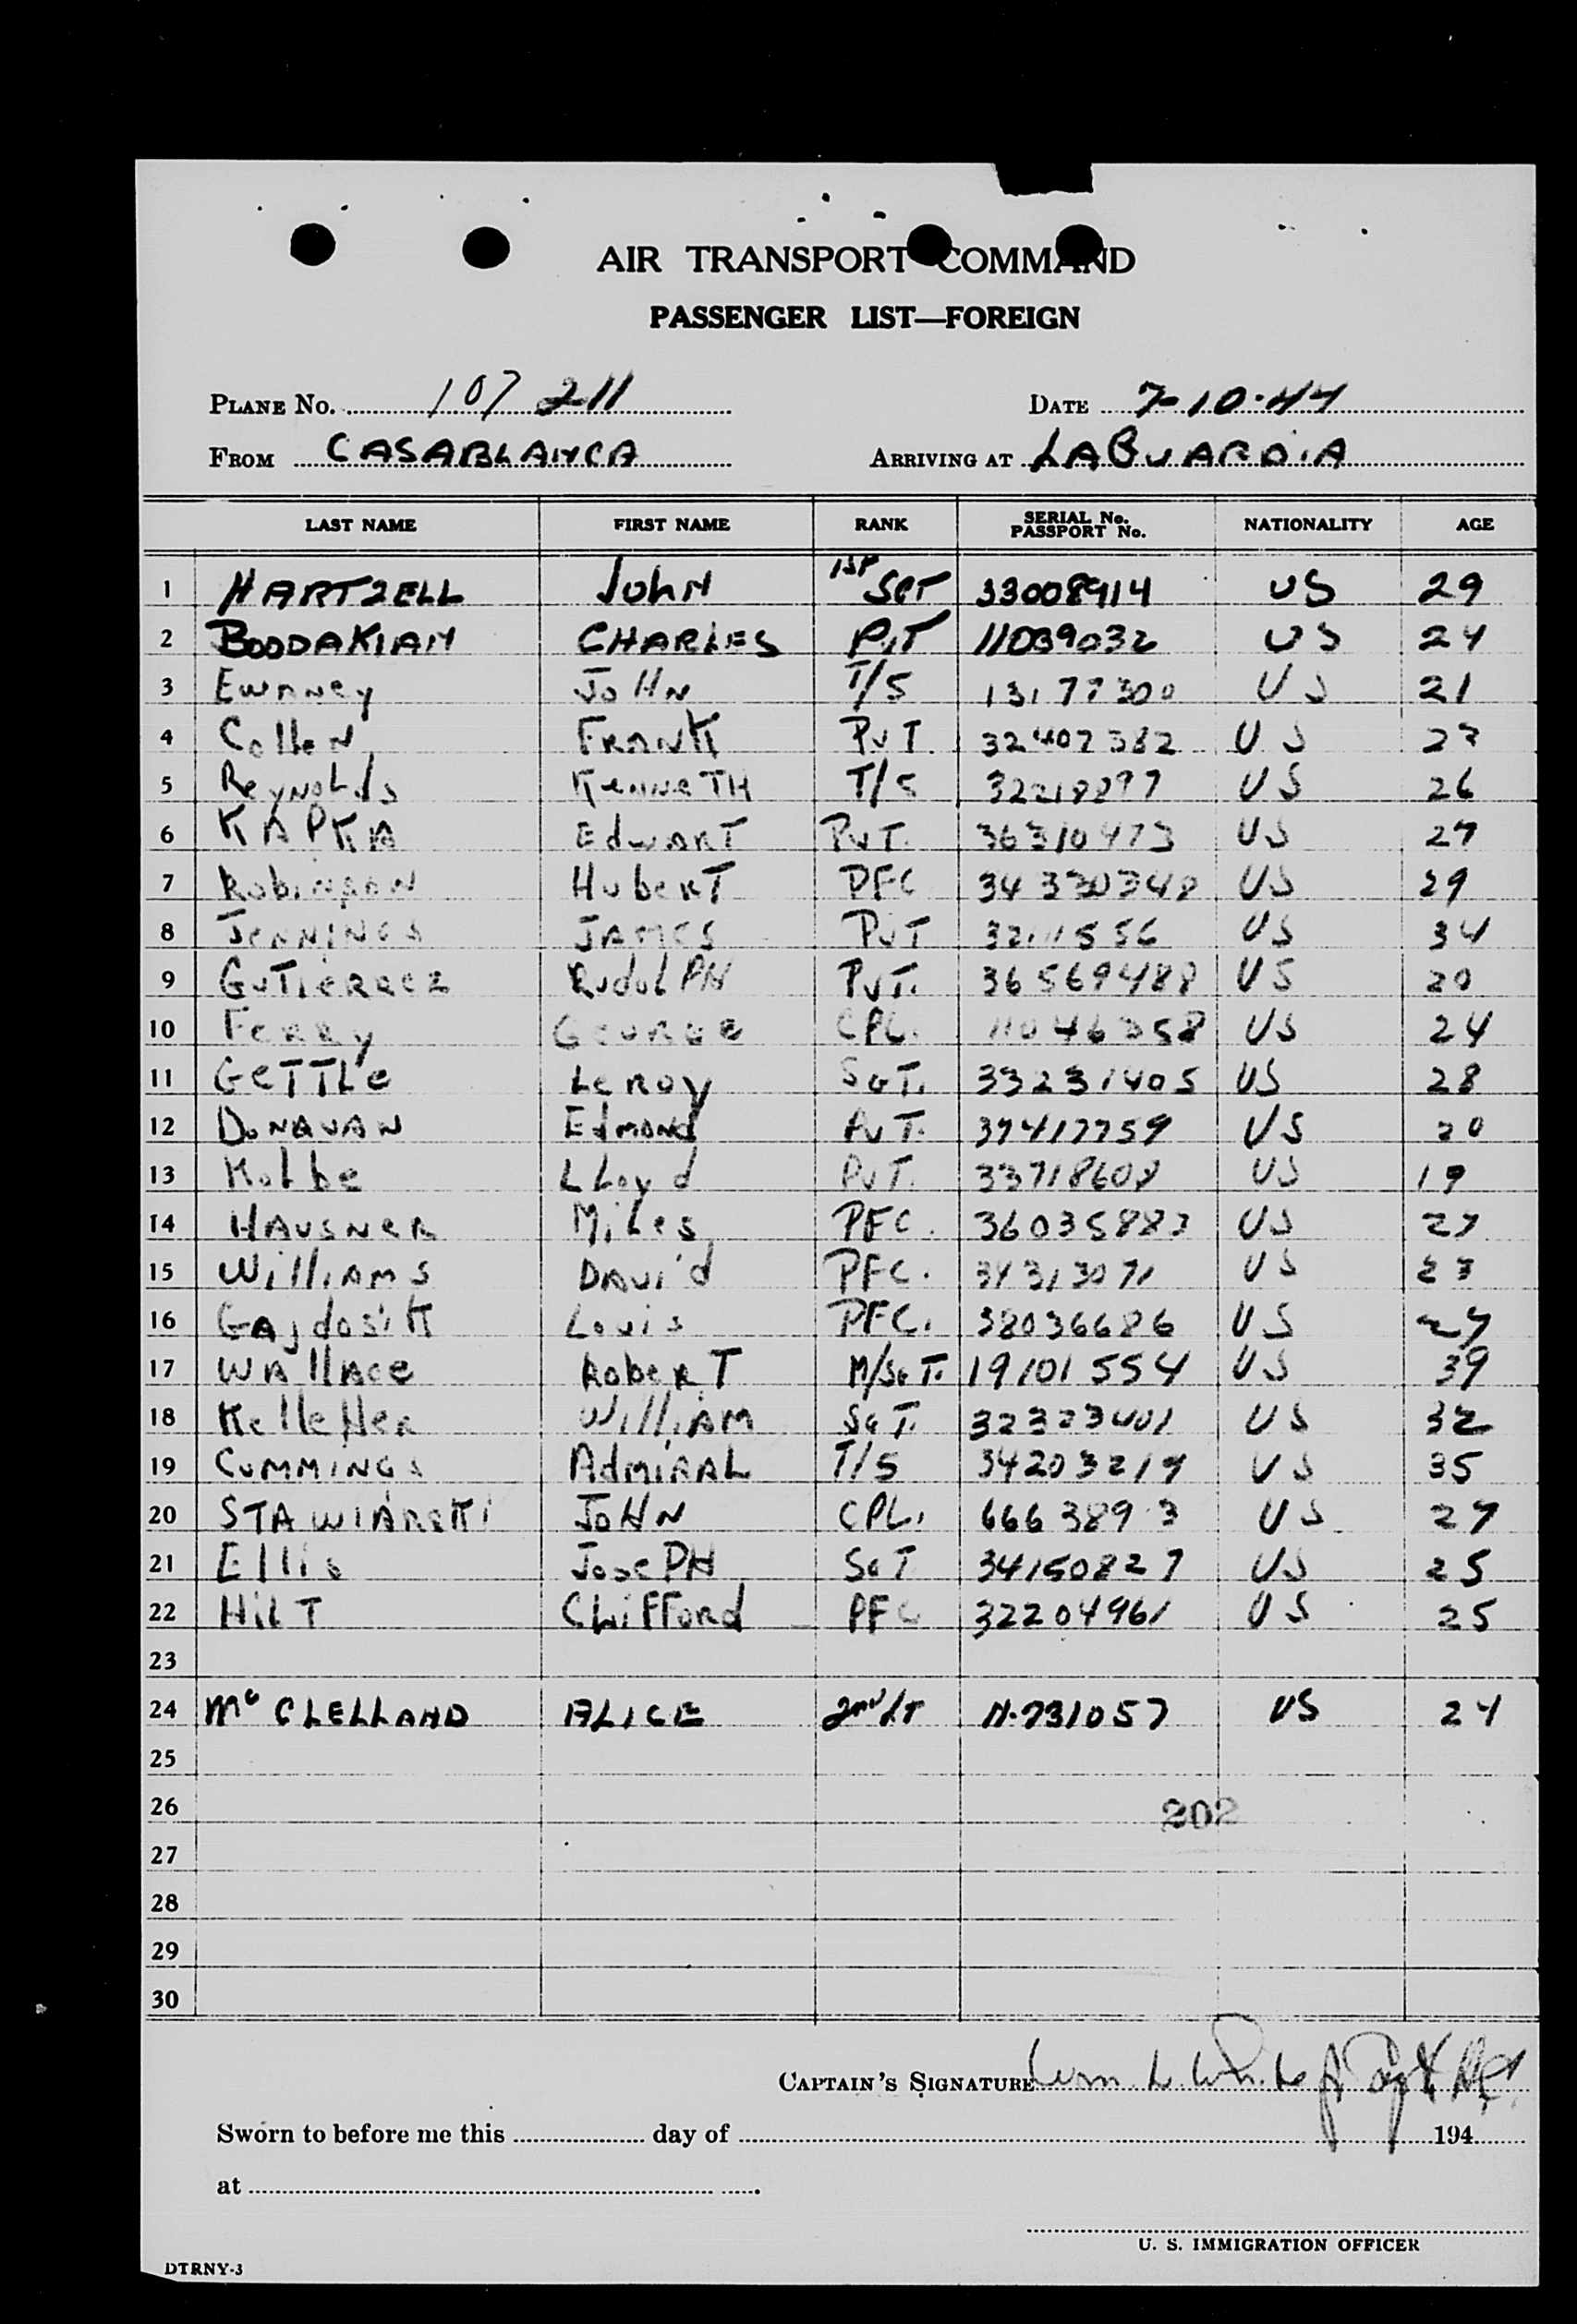 AIR TRANSPORT COMMAND
PASSENGER LIST—FOREIGN
PLANE No. 107 211 DATE 7-10-44
FROM CASABLANCA ARRIVING AT LAGUARDIA
LAST NAME FIRST NAME RANK SERIAL No. PASSPORT No. NATIONALITY AGE
1 HARTZELL JOHN 1ST SGT 33008914 US 29
2 BOODAKIAN CHARLES PVT 11039032 US 24
3 EWANEY JOHN T/5 13177300 US 21
4 Collen FRANK PVT. 32407382 US
5 Reynolds KenneTH T/5 US 26
6 KAPKA EdwarT PVT. 36310473 US 27
7 Robinson HuberT PFC 34330348 US 29
8 JENNINGS JAMES PVT 32111556 US 34
9 GUTIERREZ RudolPH PVT. 36569488 US 20
10 Ferry GEORGE CPL. US 24
11 GeTTLe LeRoy SGT. 33231405 US 28
12 DONAVAN Edmond PVT. 37417759 US 20
13 Kolbe LLoyd PVT. 33718608 US 19
14 HAUSNER MiLes PFC. US 27
15 WilliAMS DAVid PFC. 34313071 US 23
16 GAjdosiK Louis PFC. 38036686 US 27
17 WAllAce RoberT M/SGT. 19101554 US 39
18 KelleHer WilliAM SGT. 32323401 US 32
19 CUMMINGS AdMiRAL T/5 34203219 US 35
20 STAWIARSKI JOHN CPL. US 27
21 Ellis JosePH SGT 34150827 US 25
22 HiLT CLiFFord PFC 32204961 US 25
23
24 McCLELLAND ALICE 2ND LT N-731057 US 24
25
26 202
27
28
29
30
CAPTAIN'S SIGNATURE Wm. L.
Sworn to before me this day of 194
at
U. S. IMMIGRATION OFFICER
DTRNY-3